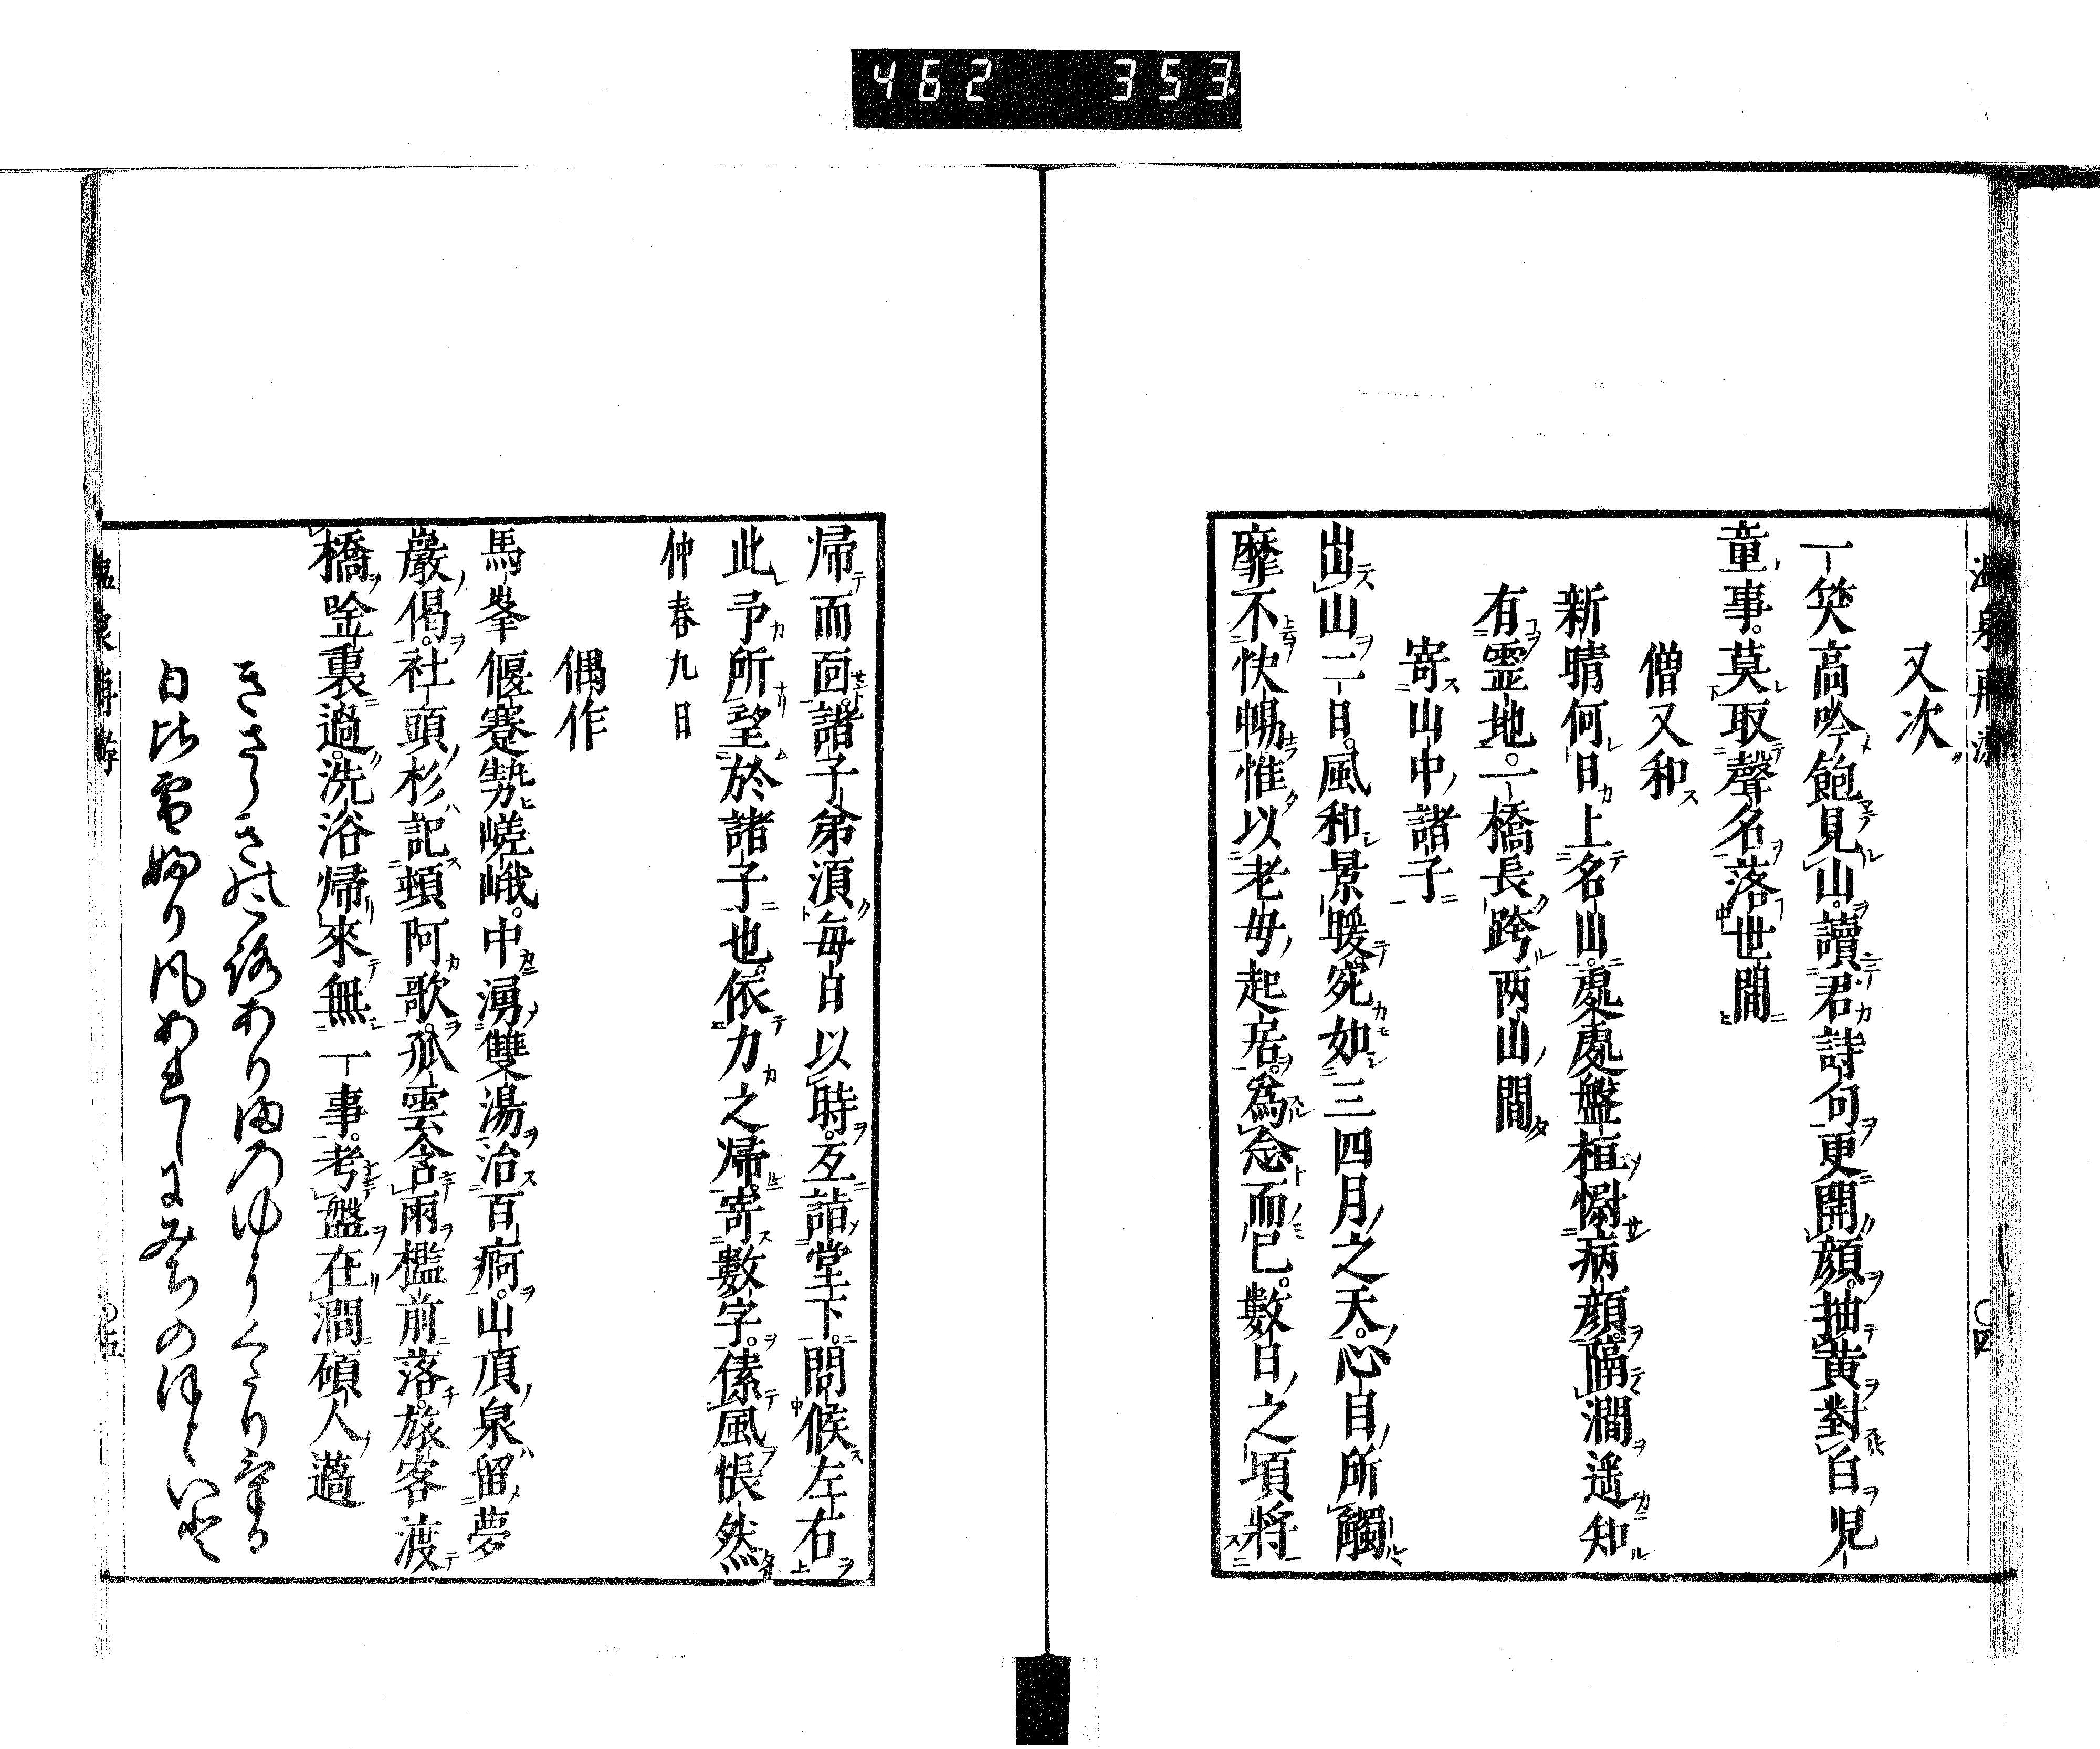 462 353
又次
一笑高吟飽見山。讀君詩句更開顔。抽黄對白児
童事。莫取聲名落世間
僧又和
新晴何日上名山。處處盤桓慰病顔。隔澗遥知
有霊地。一橋長跨两山間
寄山中諸子
出山二日。風和景暖。宛如三四月之天。心目所觸
靡不快暢。惟以老母起居。為念而已。數日之頃將
帰而面。諸子弟須毎日以時。互詣堂下。問候左右
此予所望於諸子也。依力之帰。寄數字。傃風悵然
仲春九日
偶作
馬峯偃蹇勢嵯峨。中湧雙湯治百痾。山頂泉留夢
巖偈。社頭杉記頓阿歌。孤雲含雨檻前落。旅客渡
橋唫裏過。洗浴帰來無一事。考盤在澗碩人薖
きさらきの
日比雪ふり風あれしにみちのほと